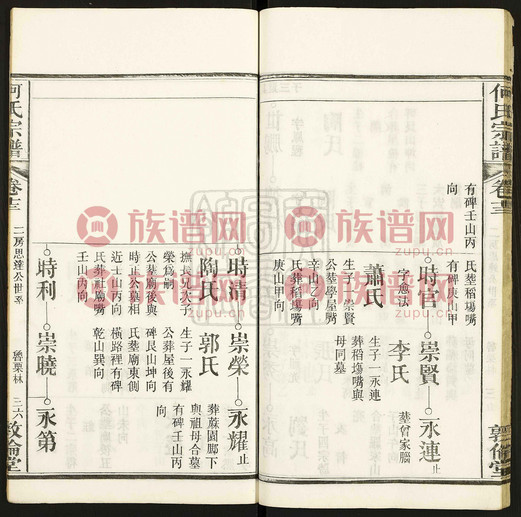 何氏宗譜
卷十三
敦倫堂
有碑壬山丙
向
氏葬稻塲嘴
有碑庚山甲
向
時官
字惠法
崇賢
永連
止
蕭氏
生子一永連
李氏
葬曾家腦
生子一崇賢
公葬學屋嘴
辛山乙向
氏葬稻塲嘴
庚山甲向
葬稻塲嘴與
母同墓
時清
崇榮
永耀
止
陶氏
生子一永耀
郭氏
撫長兄次子
榮爲嗣
公葬廟後與
時正公墓相
近壬山丙向
氏葬社廟嘴
壬山丙向
公葬屋後有
碑艮山坤向
氏墓廟東側
橫路裡有碑
乾山巽向
葬蔴園郷下
與祖母合墓
有碑壬山丙
向
時利
崇曉
永第
何氏宗譜
卷十三
二房思達公世系
魯栗林
三六
敦倫堂
族谱网
www.zupu.cn
族谱网
www.zupu.cn
族谱网
www.zupu.cn